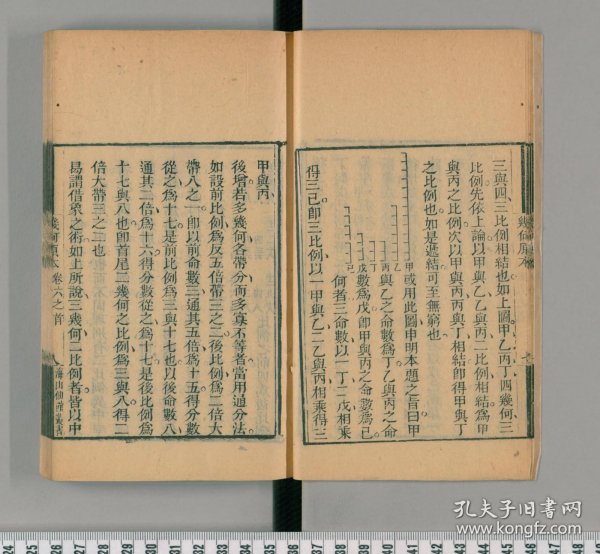 三與四三比例相結也如上圖甲乙丙丁四幾何三
比例先依上論以甲與乙乙與丙二比例相結爲甲
與丙之比例次以甲與丙丙與丁相結卽得甲與丁
之比例也如是遞結可至無窮也
或用此圖申明本題之旨曰甲
與乙之命數爲丁乙與丙之命
數爲戊卽甲與丙之命數爲己
何者三命數以一丁二戊相乘
得三己卽三比例以一甲與乙二乙與丙相乘得三
甲
乙
丙
丁
戊
己
甲與丙
後增若多幾何各帶分而多寡不等者當用通分法
如設前比例爲反五倍帶三之二後比例爲二倍大
帶八之一卽以前命數三通其五倍爲十五得分數
從之爲十七是前比例爲三與十七也以後命數八
通其二倍爲十六得分數從之爲十七是後比例爲
十七與八也卽首尾二幾何之比例爲三與八得二
倍大帶三之二也
昜謂借象之術如上所說三幾何二比例者皆以中
幾何原本 卷六之首
海山仙館叢書
幾何原本
孔夫子旧书网
www.kongfz.com
24 25 26 27 28 29 30 31 32 33 34 35 36 37 38 39 40 41 42 43 44 45 46 47 48